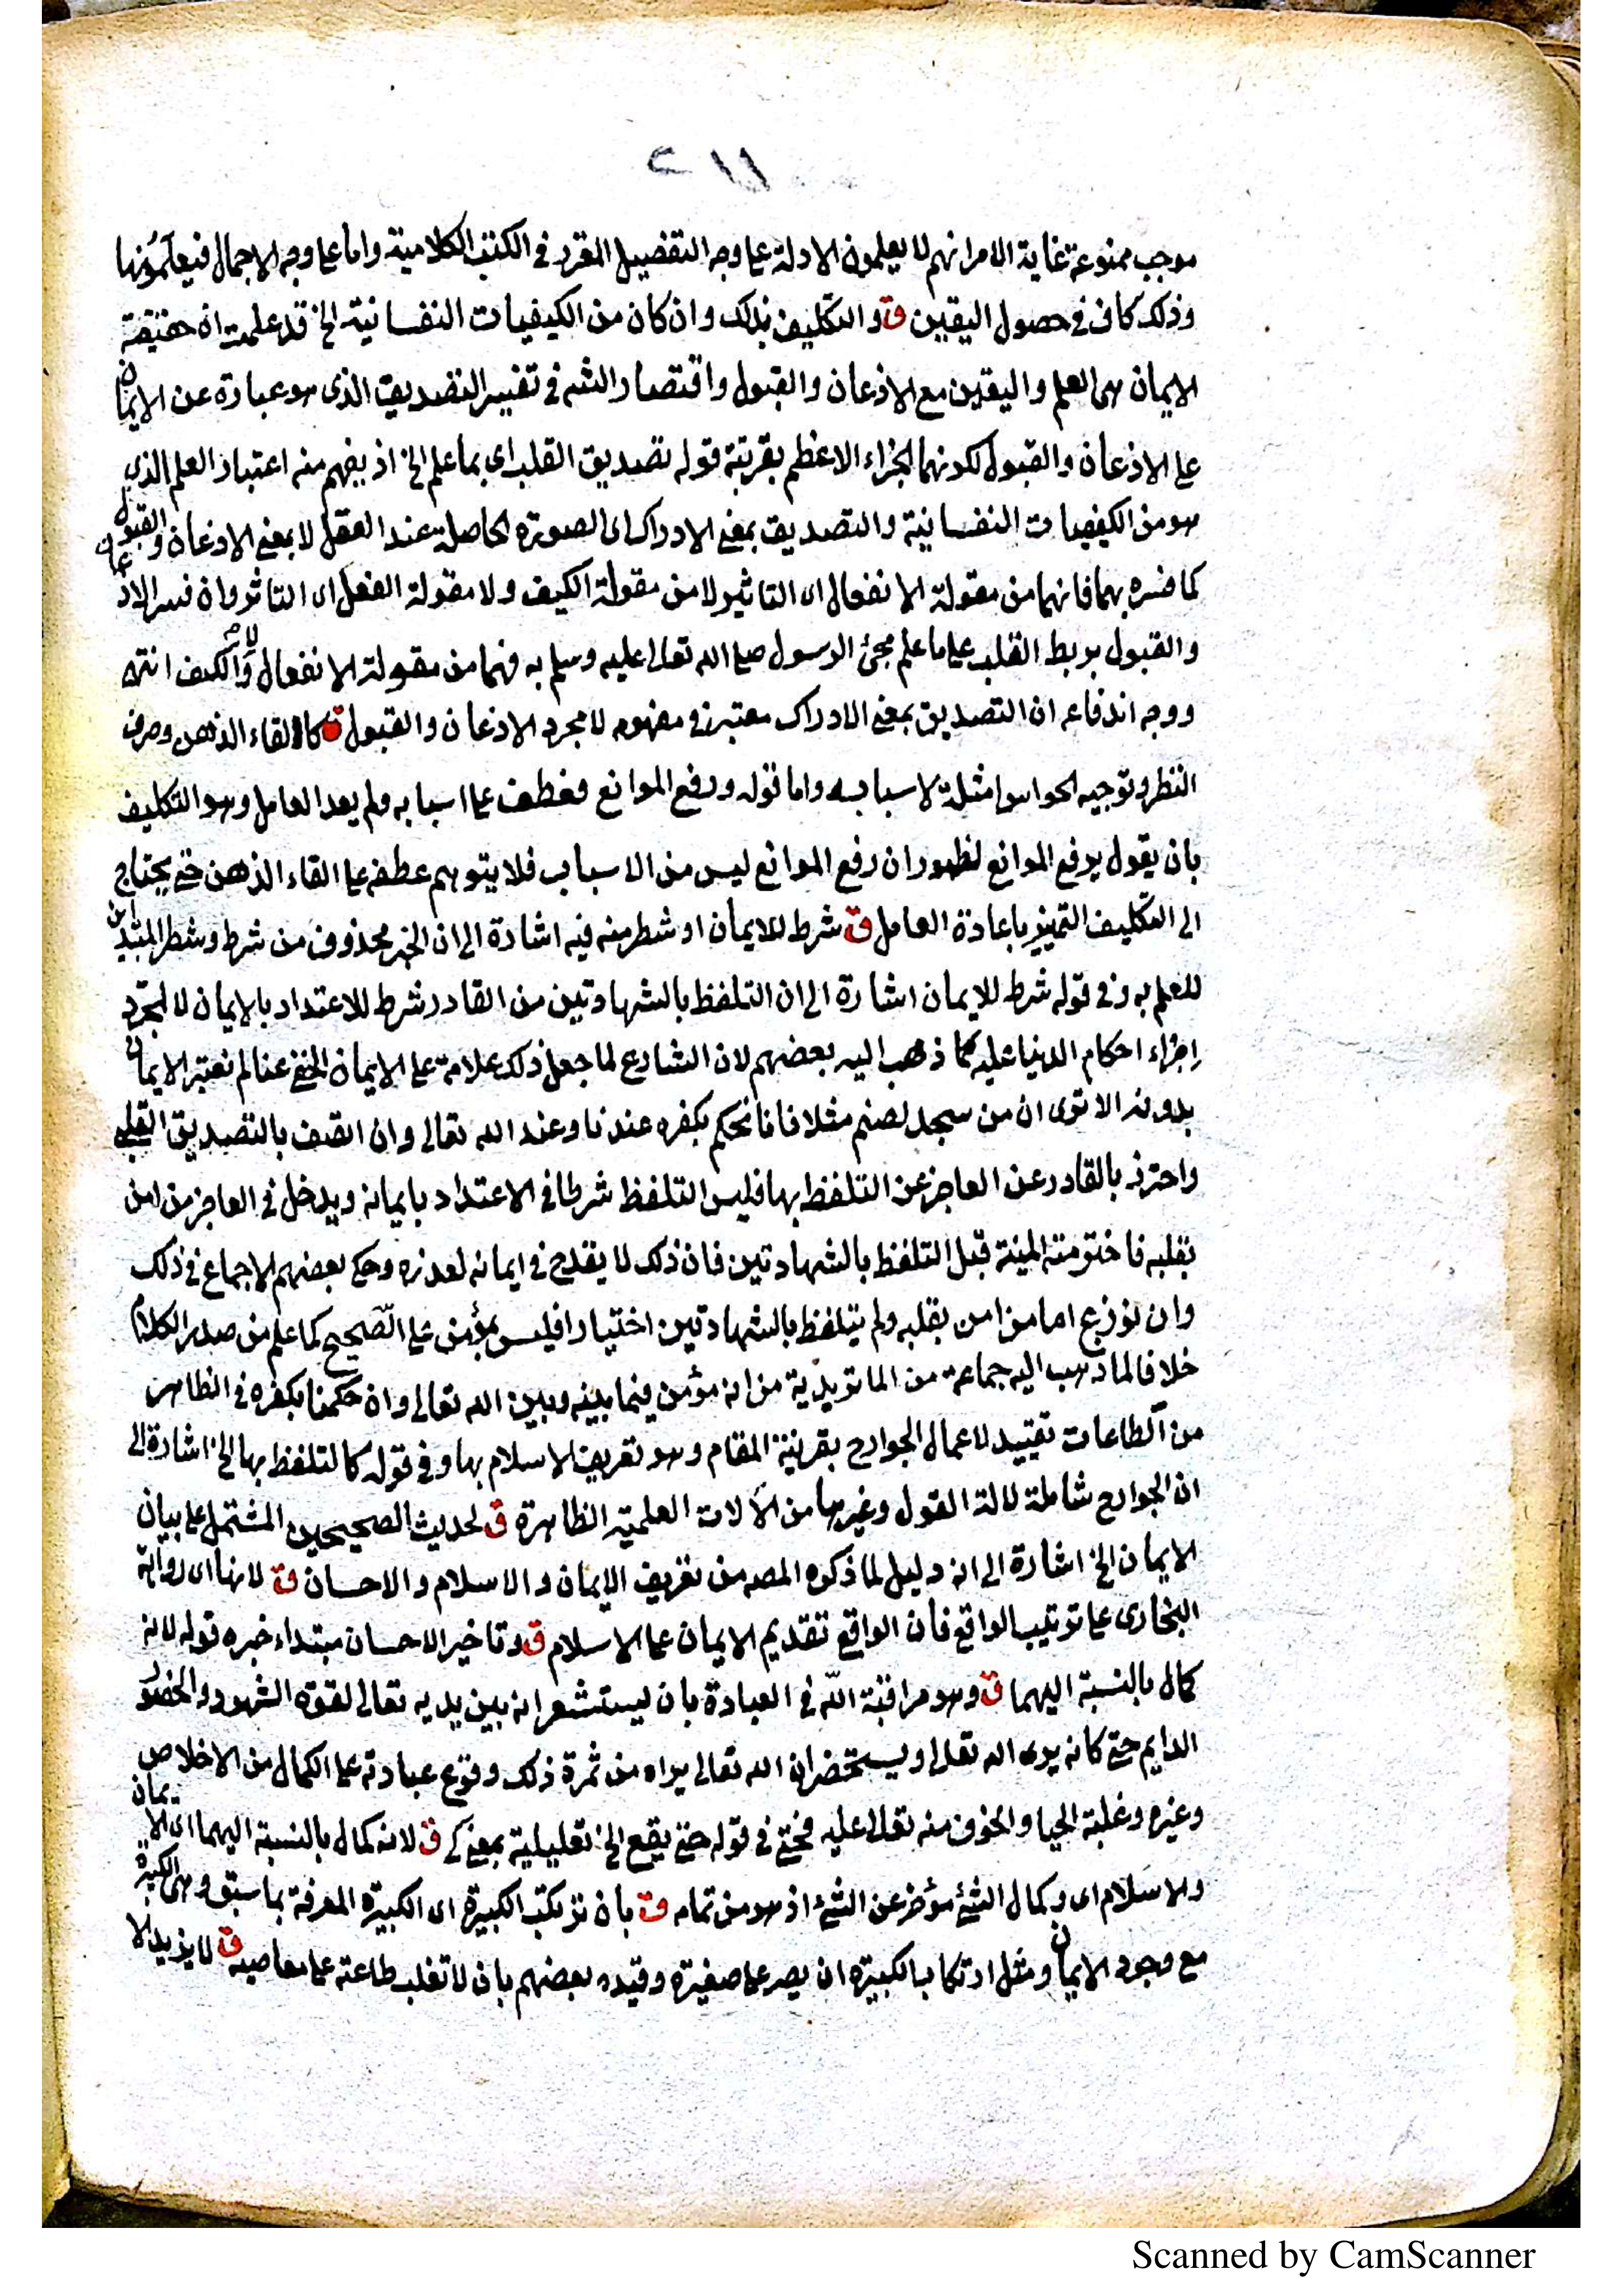 ٢١١
موجب ممنوعة غاية الامر انهم لا يعلمون الادلة على وجه التفضيل المقرر في الكتب الكلامية واما على وجه الاجمال فيعلمونها
وذلك كاف في حصول اليقين ق والتكليف بذلك وان كان من الكيفيات النفسانية الخ قد علمت ان حقيقة
الايمان هي العلم واليقين مع الاذعان والقبول واقتصار الشم في تفسير التصديق الذي هو عبارة عن الايمان
على الاذعان والقبول لكونهما الجزاء الاعظم بقرينة قوله تصديق القلب اي بما علم الخ اذ يفهم منه اعتبار العلم الذي
هو من الكيفيات النفسانية والتصديق بمعنى الادراك اى الصورة الحاصلة عند العقل لا بمعنى الاذعان والقبول
كما فسره بهما فانهما من مقولة الانفعال اى التاثير لا من مقولة الكيف ولا مقولة الفعل اى التاثر وان فسر الاذعان
والقبول بربط القلب على ما علم مجئ الرسول صلى الله تعالى عليه وسلم به فهما من مقولة الانفعال والكيف انتهى
ووجه اندفاعه ان التصديق بمعنى الادراك معتبر في مفهومه لا مجرد الاذعان والقبول ق كالقاء الذهن وصرف
النظر وتوجيه الحواس امثلة لاسبابه واما قوله ورفع الموانع فعطف على اسبابه ولم يعد العامل وهو التكليف
بان يقول برفع الموانع لظهور ان رفع الموانع ليس من الاسباب فلا يتوهم عطفه على القاء الذهن حتى يحتاج
الى التكليف التمييز باعادة العامل ق شرط للايمان او شطر منه فيه اشارة الى ان الخبر محذوف من شرط وشطر المبتدأين
للعلم به وفي قوله شرط للايمان اشارة الى ان التلفظ بالشهادتين من القادر شرط للاعتداد بالايمان لا لمجرد
اجراء احكام الدنيا عليه كما ذهب اليه بعضهم لان الشارع لما جعل ذلك علامة على الايمان الخفي عنا لم نعتبر الايمان
بدونه الا ترى ان من سجد لصنم مثلا فانا نحكم بكفره عندنا وعند الله تعالى وان اتصف بالتصديق القلبي
واحترز بالقادر عن العاجز عن التلفظ بها فليس التلفظ شرطا في الاعتداد بايمانه ويدخل في العاجز من امن
بقلبه فاخترمته المنية قبل التلفظ بالشهادتين فان ذلك لا يقدح في ايمانه لعذره وحكى بعضهم الاجماع في ذلك
وان نوزع اما من امن بقلبه ولم يتلفظ بالشهادتين اختيارا فليس بمؤمن على الصحيح كما علم من صدر الكلام
خلافا لما ذهب اليه جماعة من الماتريدية من انه مؤمن فيما بينه وبين الله تعالى وان حكمنا بكفره في الظاهر
من الطاعات تقييد لاعمال الجوارح بقرينة المقام وهو تعريف الاسلام بها وفي قوله كالتلفظ بها الخ اشارة الى
ان الجوارح شاملة لالة القول وغيرها من الالات العلمية الظاهرة ق لحديث الصحيحين المشتمل على بيان
الايمان الخ اشارة الى انه دليل لما ذكره المصـ من تعريف الايمان والاسلام والاحسان ق لانها اى رواية
البخارى على ترتيب الواقع فان الواقع تقديم الايمان على الاسلام ق وتاخير الاحسان مبتداء خبره قوله لانه
كمال بالنسبة اليهما ق وهو مراقبة الله في العبادة بان ليستشعر انه بين يديه تعالى لقوة الشهود والحضور
الدايم حتى كانه يرى الله تعالى ويستحضر ان الله تعالى يراه من ثمرة ذلك وقوع عبادته على الكمال من الاخلاص
وغيره وغلبة الحيا والخوف منه تعالى عليه فحتى في قوله حتى يقع الخ تعليلية بمعنى كى ق لانه كمال بالنسبة اليهما اى الايمان
والاسلام اى وكمال الشئ مؤخر عن الشئ اذ هو من تمامه ق بان تركب الكبيرة اى الكبيرة المعرفة بما سبق وهي الكبيرة
مع وجود الايمان ومثل ارتكاب الكبيرة ان يصر على صغيرة وقيده بعضهم بان لا تغلب طاعته على معاصيه ق لا يزيد الا
Scanned by CamScanner